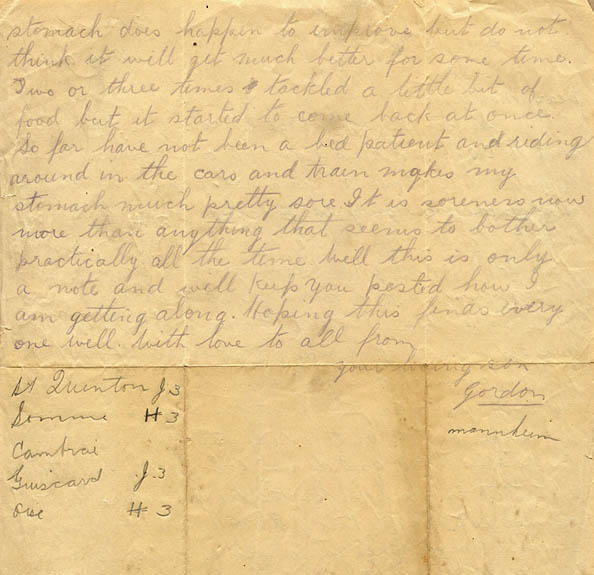 stomach does happen to improve but do not
think it will get much better for some time.
Two or three times tackled a little bit of
food but it started to come back at once.
So far have not been a bed patient and riding
around in the cars and train makes my
stomach much pretty sore. It is soreness now
more than anything that seems to bother
practically all the time. Well this is only
a note and will keep you posted how I
am getting along. Hoping this finds every
one well. With love to all from
your loving son
Gordon
mannheim
St Quinton J 3
Somme H 3
Cambrai
Guiscard J 3
H 3